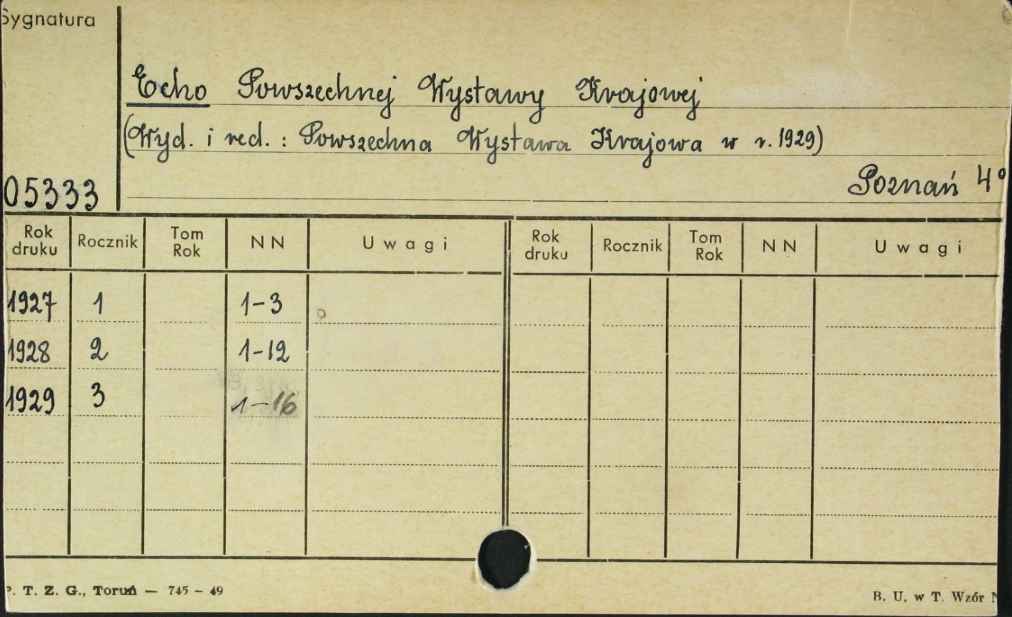 Sygnatura
Echo Powszechnej Wystawy Krajowej
(Wyd. i red.: Powszechna Wystawa Krajowa w r. 1929)
Poznań 4°
05333
Rok druku Rocznik Tom Rok NN Uwagi Rok druku Rocznik Tom Rok NN Uwagi
1927 1 1-3
1928 2 1-12
1929 3 1-16
P. T. Z. G., Toruń — 745 - 49
B. U. w T. Wzór